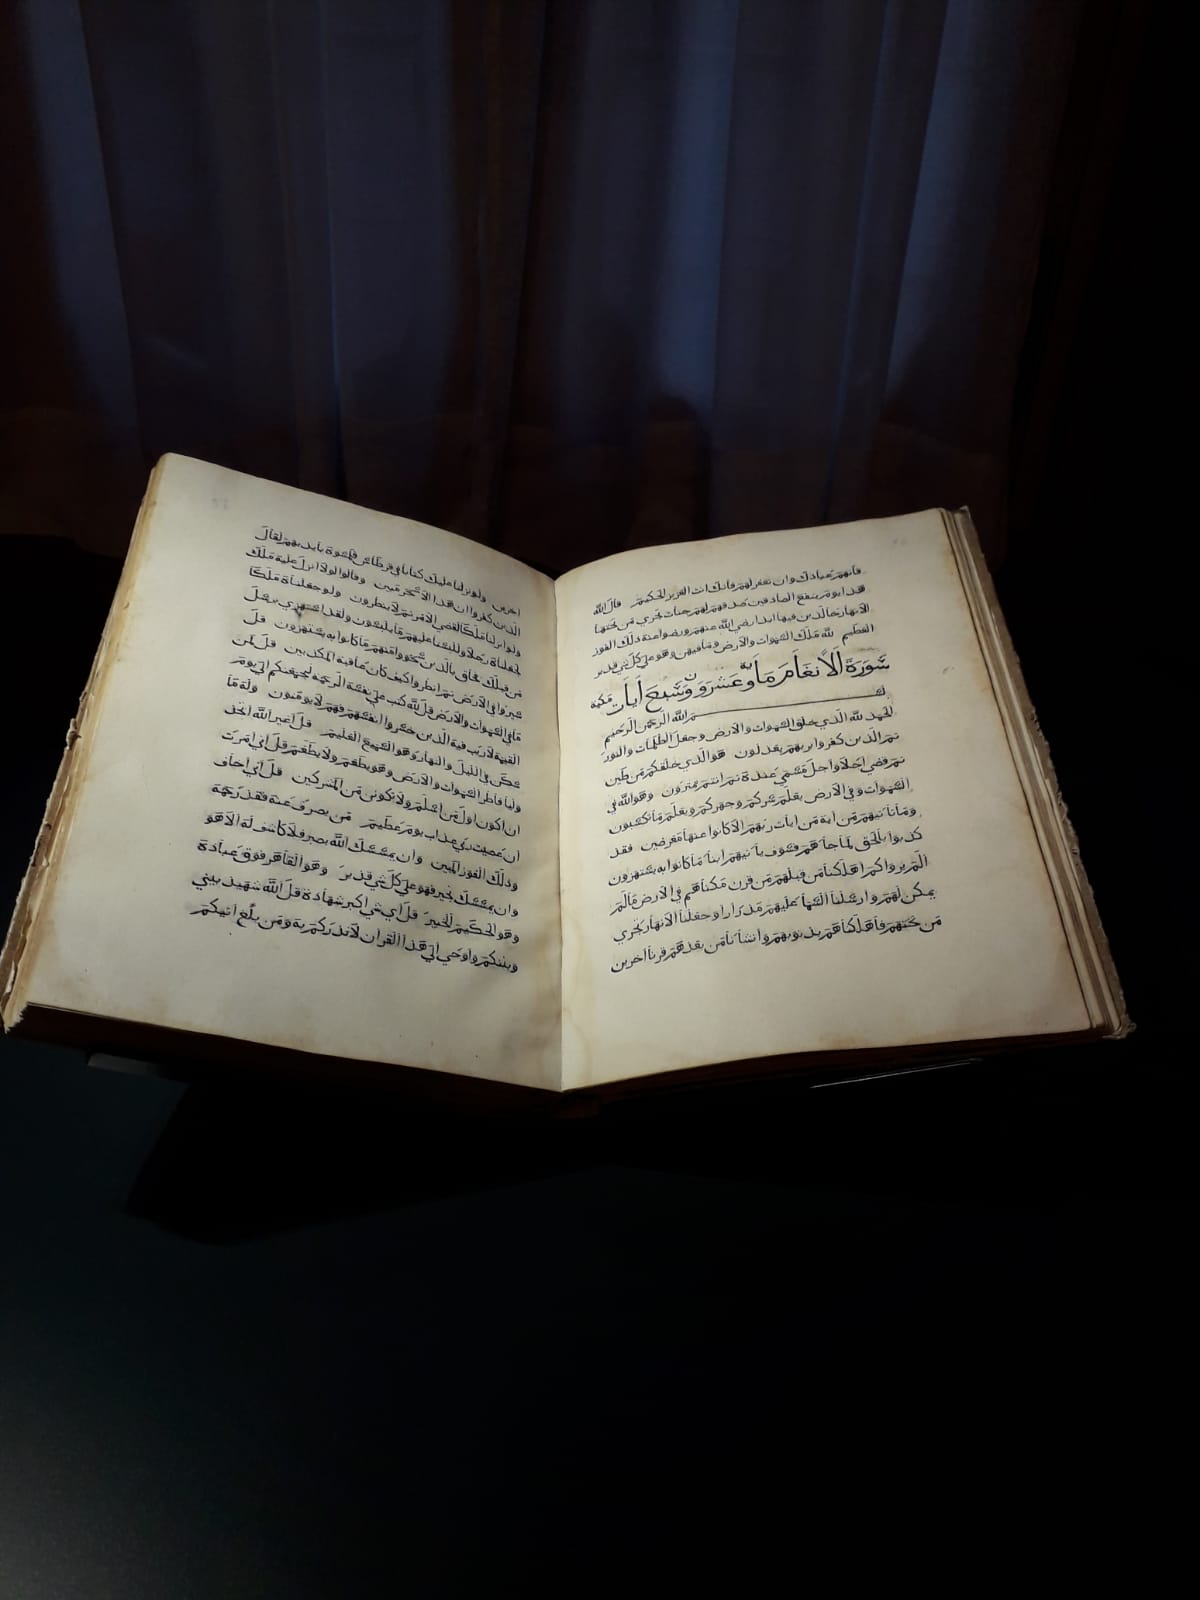 فانهم عبادك وان تغفر لهم فانك انت العزيز الحكيم قال الله
هذا يوم ينفع الصادقين صدقهم لهم جنات تجري من تحتها
الانهار خالدين فيها ابدا رضي الله عنهم ورضوا عنه ذلك الفوز
العظيم لله ملك السموات والارض وما فيهن وهو على كل شي قدير
سورة الانعام ماية وعشرون وسبع ايات مكية
بسم الله الرحمن الرحيم
الحمد لله الذي خلق السموات والارض وجعل الظلمات والنور
ثم الذين كفروا بربهم يعدلون هو الذي خلقكم من طين
ثم قضي اجلا واجل مسمي عنده ثم انتم تمترون وهو الله في
السموات وفي الارض يعلم سركم وجهركم ويعلم ما تكسبون
وما تاتيهم من اية من ايات ربهم الا كانوا عنها معرضين فقد
كذبوا بالحق لما جاهم فسوف ياتيهم ابنا ما كانوا به يستهزون
الم يروا كم اهلكنا من قبلهم من قرن مكناهم في الارض ما لم
يمكن لهم وارسلنا السما عليهم مدرارا وجعلنا الانهار تجري
من تحتهم فاهلكناهم بذنوبهم وانشانا من بعدهم قرنا اخرين
اخرين ولو نزلنا عليك كتابا في قرطاس فلمسوه بايديهم لقال
الذين كفروا ان هذا الا سحر مبين وقالوا لولا انزل عليه ملك
ولو انزلنا ملكا لقضي الامر ثم لا ينظرون ولو جعلناه ملكا
لجعلناه رجلا وللبسنا عليهم ما يلبسون ولقد استهزي برسل
من قبلك فحاق بالذين سخروا منهم ما كانوا به يستهزون قل
سيروا في الارض ثم انظروا كيف كان عاقبة المكذبين قل لمن
ما في السموات والارض قل لله كتب علي نفسه الرحمة ليجمعنكم الي يوم
القيمة لا ريب فيه الذين خسروا انفسهم فهم لا يومنون وله ما
سكن في الليل والنهار وهو السميع العليم قل اغير الله اتخذ
وليا فاطر السموات والارض وهو يطعم ولا يطعم قل اني امرت
ان اكون اول من اسلم ولا تكونن من المشركين قل اني اخاف
ان عصيت ربي عذاب يوم عظيم من يصرف عنه فقد رحمه
وذلك الفوز المبين وان يمسسك الله بضر فلا كاشف له الا هو
وان يمسسك بخير فهو علي كل شي قدير وهو القاهر فوق عباده
وهو الحكيم الخبير قل اي شي اكبر شهادة قل الله شهيد بيني
وبينكم واوحي الي هذا القران لانذركم به ومن بلغ ائنكم